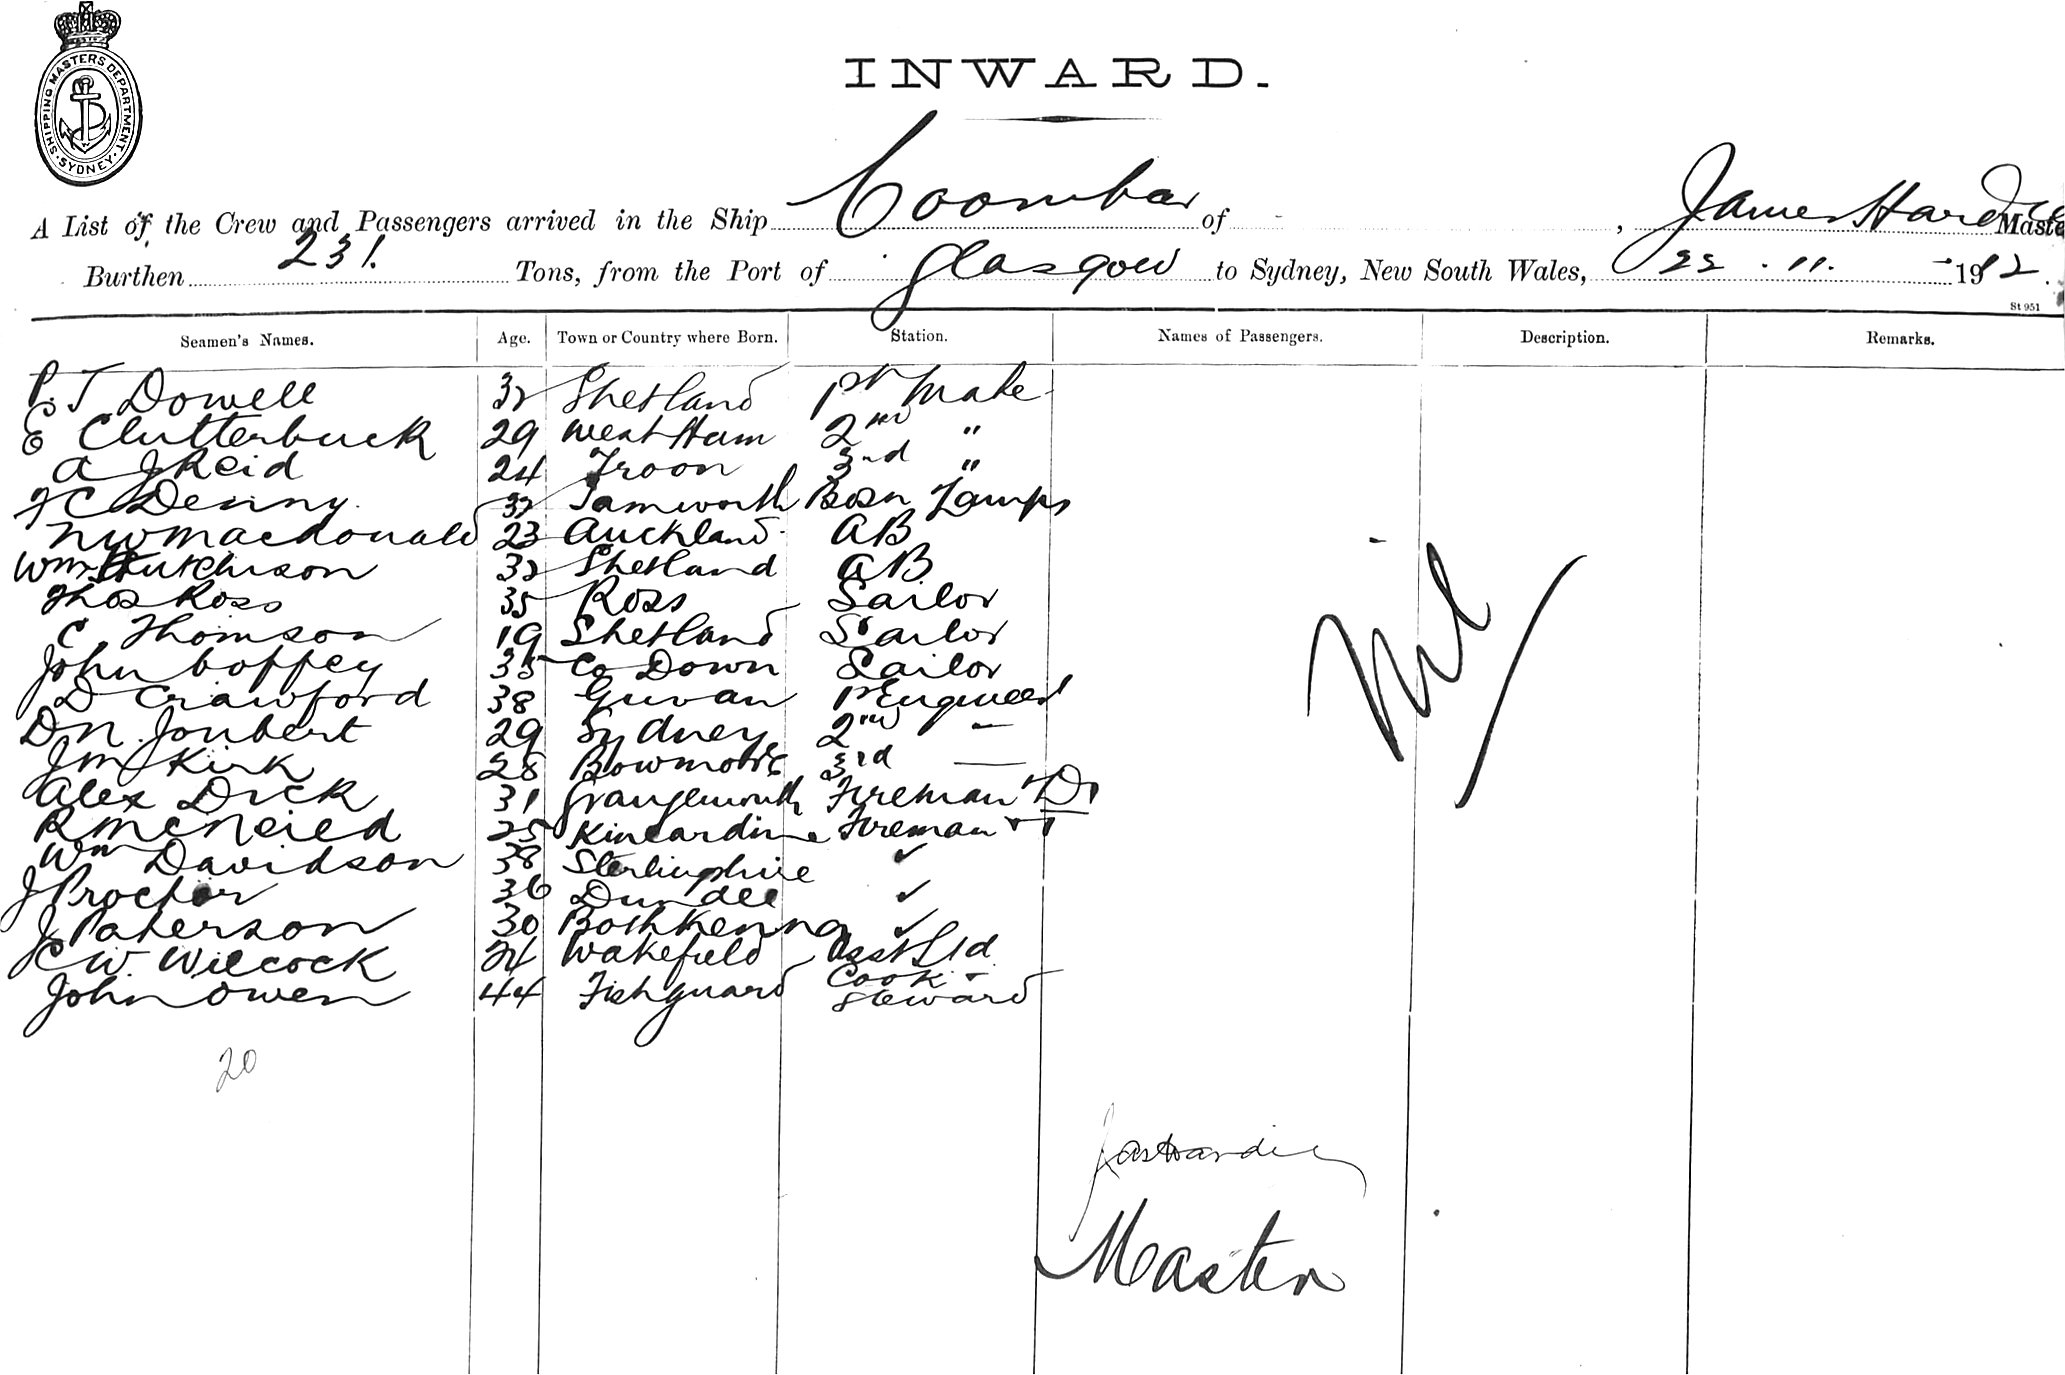 SHIPPING MASTERS DEPARTMENT. SYDNEY.
INWARD.
A List of the Crew and Passengers arrived in the Ship Coombar of , James Hardie Maste
Burthen 231. Tons, from the Port of Glasgow to Sydney, New South Wales, 22.11. 1912.
St 951
Seamen's Names. Age. Town or Country where Born. Station. Names of Passengers. Description. Remarks.
P. T Dowell 32 Shetland 1st Mate
E Clutterbuck 29 West Ham 2nd "
A J Reid 24 Troon 3rd "
F C Denny 32 Tamworth Bosn Lamps
N W Macdonald 23 Auckland AB
Wm Hutchison 32 Shetland AB
Thos Ross 35 Ross Sailor
C. Thomson 19 Shetland Sailor
John Coffey 35 Co Down Sailor
D Crawford 38 Guvan 1st Engineer
D N. Joubert 29 Sydney 2nd -
J M Kirk 28 Bowmore 3rd —
Alex Dick 31 Grangemouth Fireman
R McNeied 25 Kincardine Fireman
Wm Davidson 38 Sterlingshire ✓
J Proctor 36 Dundee ✓
J Paterson 30 Bothkenna ✓
J C W. Wilcock 24 Wakefield Asst Std
John Owen 44 Fishguard Cook - Steward
Nil
20
Jas Hardie
Master